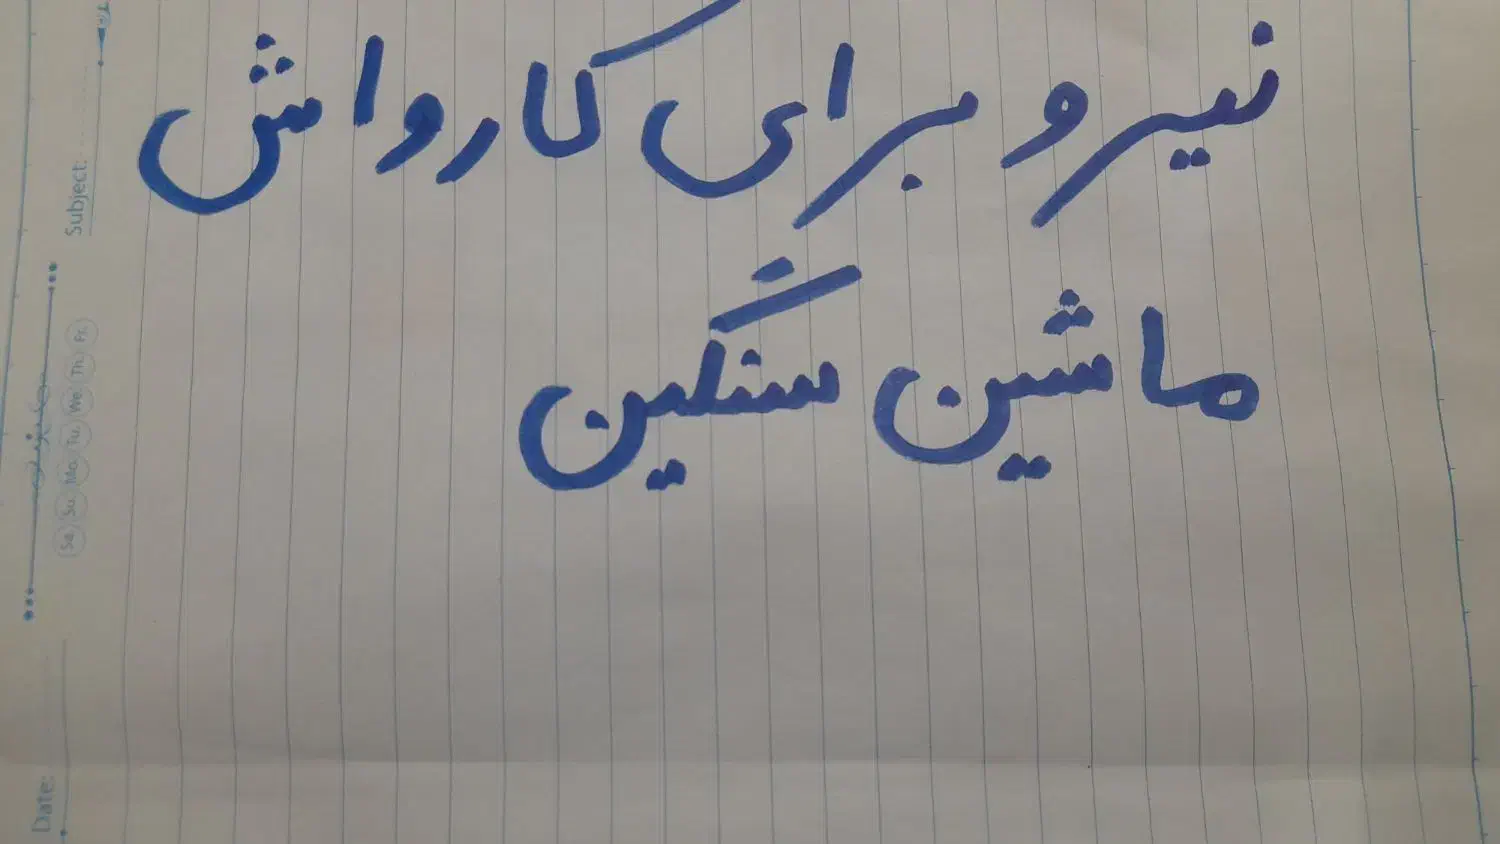 نیرو برای کارواش
ماشین سنگین
Subject:
Sa. Su. Mo. Tu. We. Th. Fr.
Date: